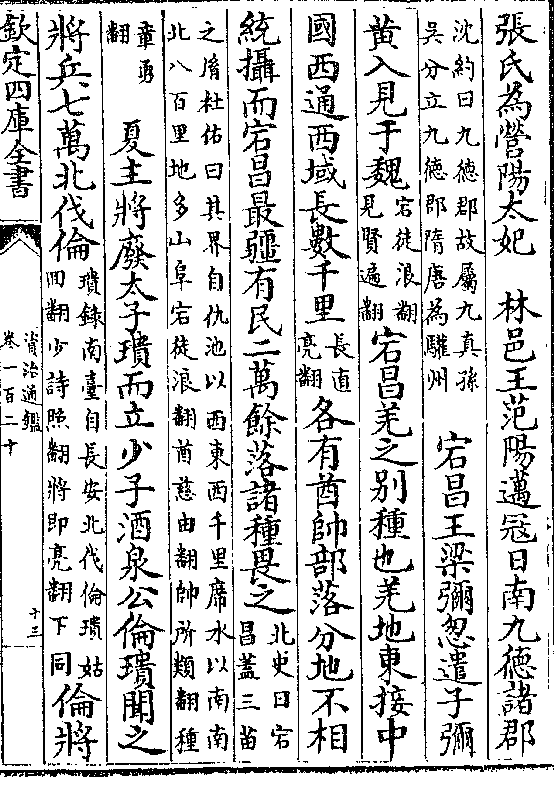 張氏為營陽太妃　林邑王范陽邁寇日南九德諸郡
沈約曰九德郡故屬九真孫
吳分立九德郡隋唐為驩州
宕昌王梁彌怱遣子彌
黄入見于魏
宕徒浪翻
見賢遍翻
宕昌羌之别種也羌地東接中
國西通西域長數千里
長直
亮翻
各有酋帥部落分地不相
統攝而宕昌最彊有民二萬餘落諸種畏之
北史曰宕
昌蓋三苗
之㣧杜佑曰其界自仇池以西東西千里席水以南南
北八百里地多山阜宕徒浪翻酋慈由翻帥所類翻種
章勇
翻
夏主將廢太子璝而立少子酒泉公倫璝聞之
將兵七萬北伐倫
璝錄南臺自長安北伐倫璝姑
回翻少詩照翻將即亮翻下同
倫將
欽定四庫全書
資治通鑑
卷一百二十
十三